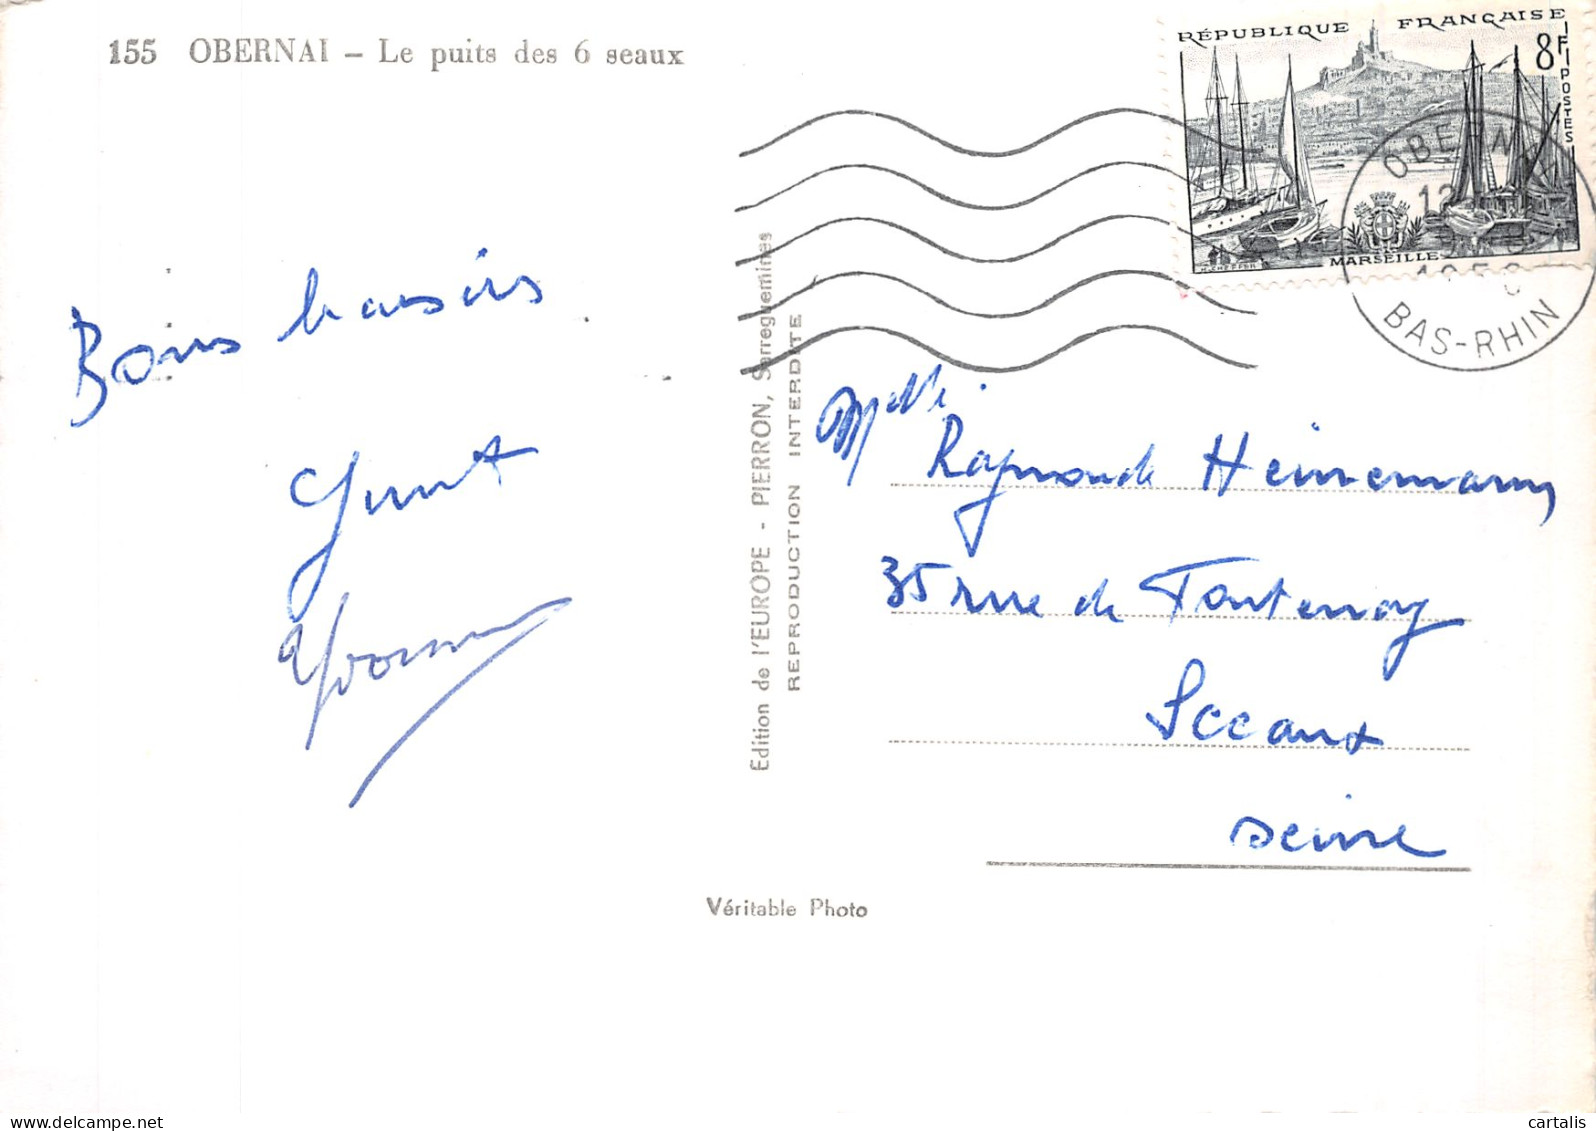 155 OBERNAI – Le puits des 6 seaux
RÉPUBLIQUE FRANÇAISE
8F
POSTES
MARSEILLE
OBERNAI
BAS-RHIN
Bons baisers
Yvonne
Edition de l'EUROPE - PIERRON, Sarreguemines
REPRODUCTION INTERDITE
Melle
Raymonde Heinemann
35 rue de Fontenay
Sceaux
Seine
Véritable Photo
cartalis